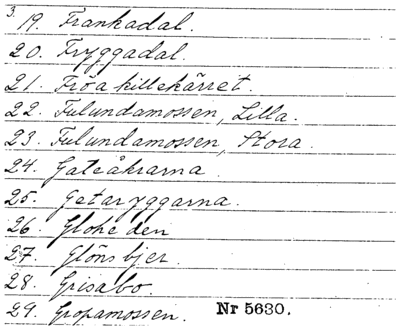 3.
19. Frankadal.
20. Fryggadal.
21. Fröakillekärret.
22. Fulundamossen, Lilla.
23. Fulundamossen, Stora.
24. Gateåkrarna.
25. Getaryggarna.
26. Gloheden
27. Glönsbjer.
28. Grisabo.
29. Gropamossen. Nr 5630.